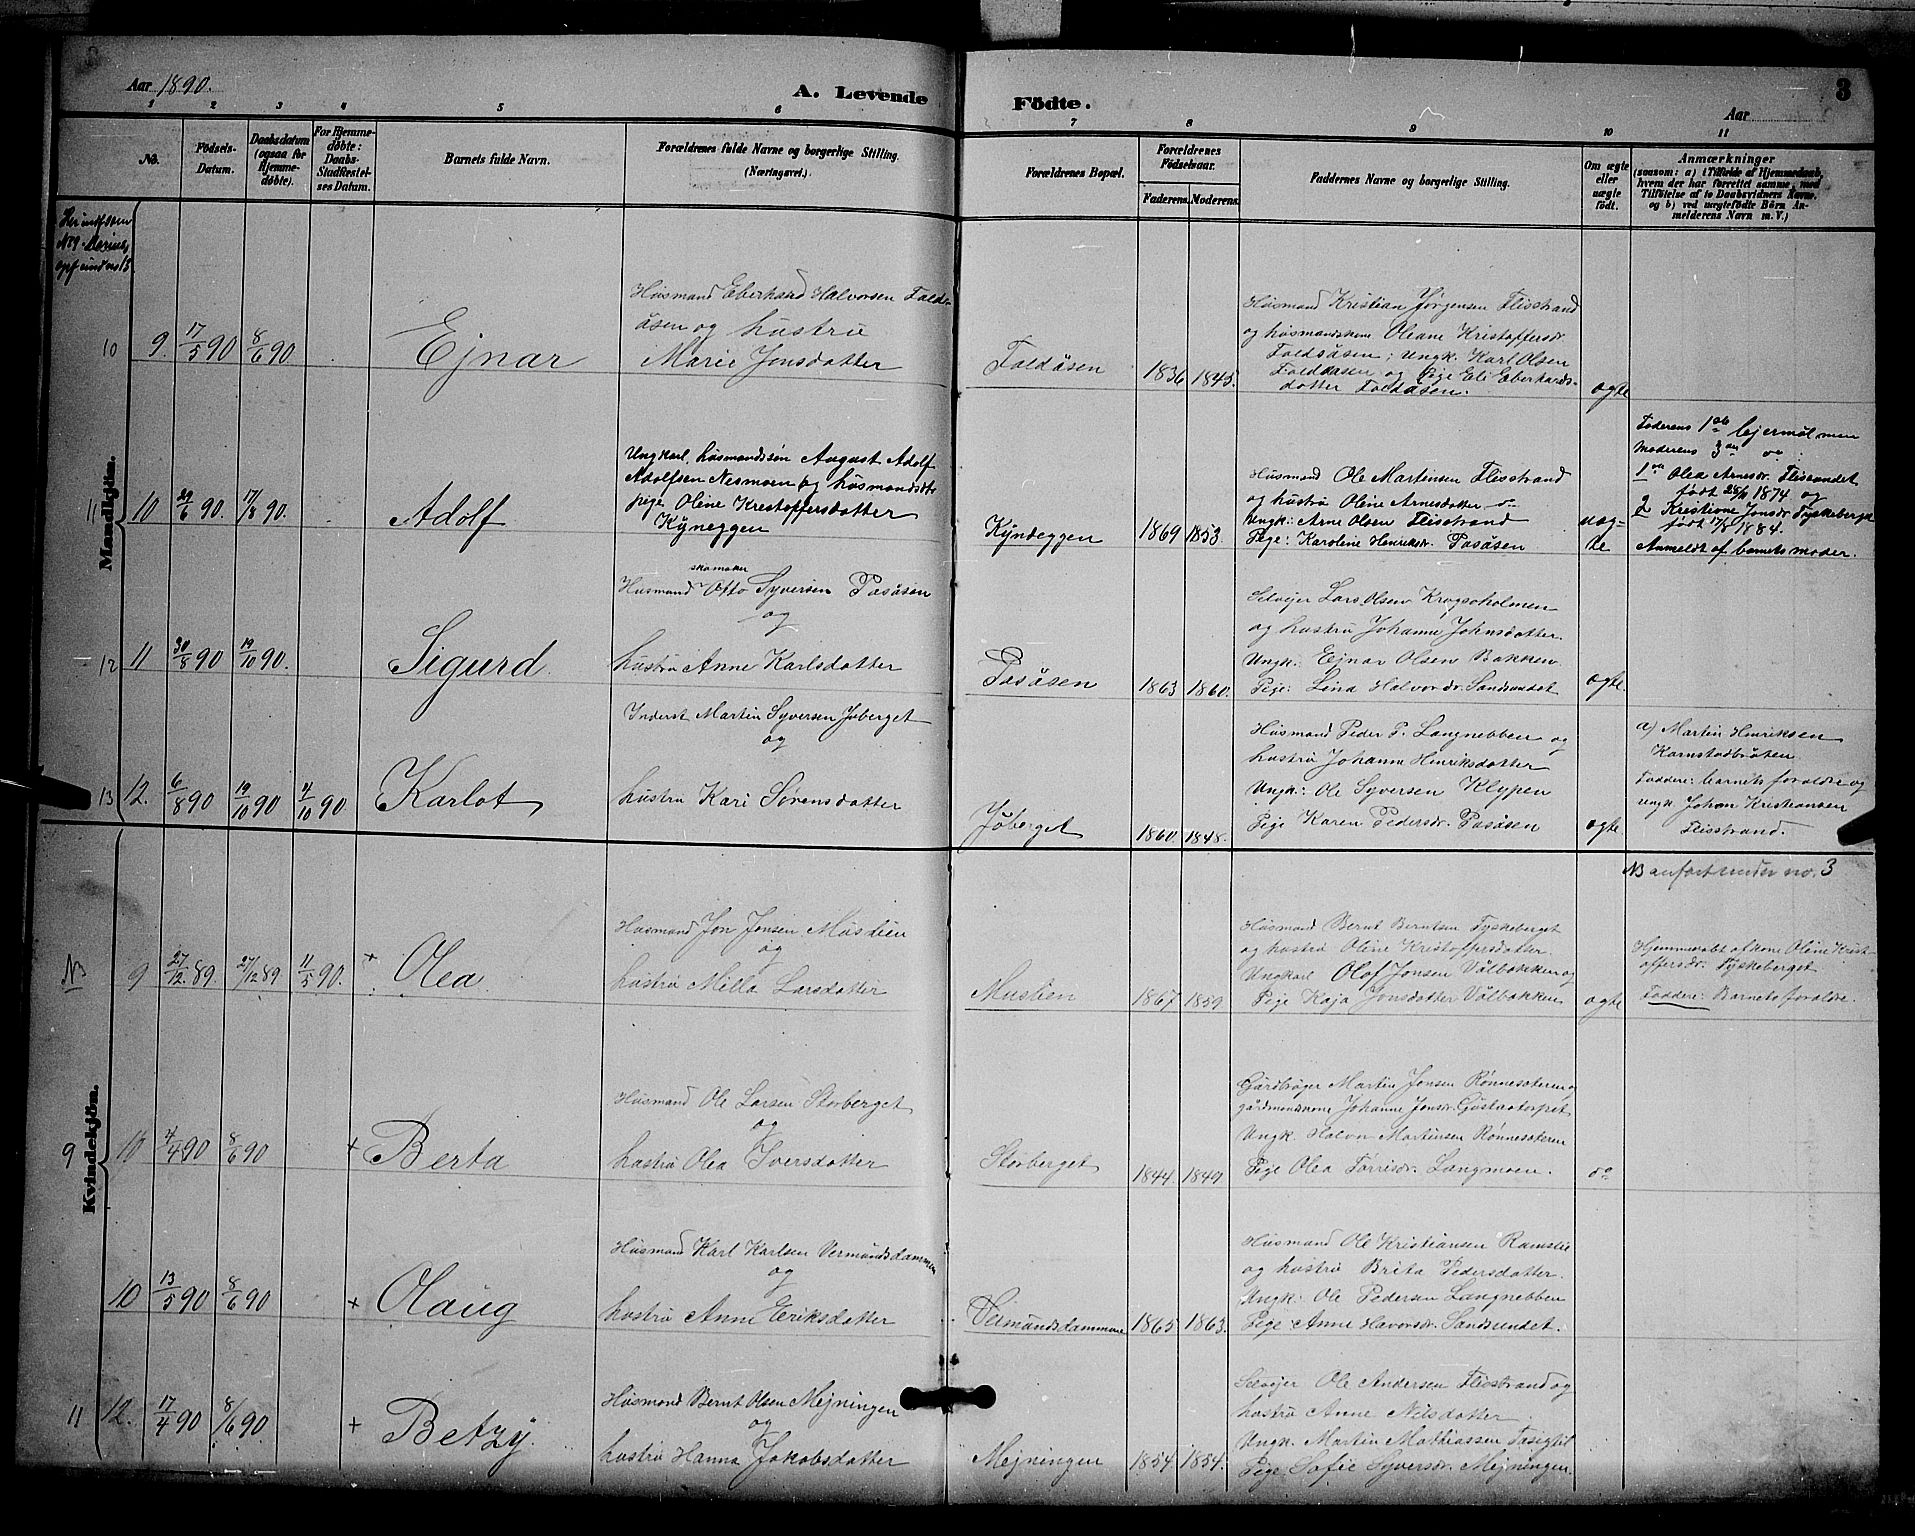 Aar 1890.
A. Levende Födte.
3
Aar
1 2 3 4 5 6 7 8 9 10 11
No.
Födsels-Datum.
Daabsdatum (ogsaa for Hjemmedøbte).
For Hjemmedøbte: Daabs-Stadfæstelses Datum.
Barnets fulde Navn.
Forældrenes fulde Navne og borgerlige Stilling.
(Næringsvei.)
Forældrenes Bopæl.
Forældrenes Födselsaar.
Faderens. Moderens.
Faddernes Navne og borgerlige Stilling.
Om ægte eller uægte födt.
Anmærkninger
(saasom: a) i Tilfælde af Hjemmedaab, hvem der har forrettet samme, med Tilföielse af to Daabsvidners Navne, og b) ved uægtefödte Börn Anmelderens Navn m. V.)
Mandkjön.
10 9. 17/5 90 8/6 90
Ejnar
Husmand Eberhard Halvorsen Fald-
åsen og hustru
Marie Jonsdatter
Faldåsen
1836 1845.
Husmand Kristian Jørgensen Flisstrand
og husmandskone Oleane Kristoffersdr.
Faldåsen; Ungk. Karl Olsen
Faldåsen og Pige Eli Eberhards-
datter Faldåsen.
ægte
11 10 29/6 90. 17/8 90.
Adolf
Ungkarl, husmandssøn August Adolf
Adolfsen Nesmoen og husmandsdtr
pige Oline Kristoffersdatter
Kyneggen
Kyndeggen
1869 1853.
Husmand Ole Martinsen Flisstrand
og hustru Oline Arnesdatter
Ungk: Arne Olsen Flisstrand
Pige: Karoline Henriksdr. Pasåsen
uæg-
te
Faderens 1ste lejermål men
Moderens 3die do:
født 28/9 1874 og
2 Kristiane Jonsdr Tyskeberget
født 17/8 1884.
Anmeldt af barnets moder.
12 11 30/8 90 19/10 90.
Sigurd
skomaker
Husmand Otto Syversen Pasåsen
og
hustru Anne Karlsdatter
Pasåsen
1863 1860.
Selvejer Lars Olsen Krogsholmen
og hustru Johanne Johnsdatter.
Ungk: Ejnar Olsen Bakken
Pige: Lina Halvorsdr. Sandsundet
ægte.
13 12. 6/8 90 19/10 90 4/10 90
Karlot
Inderst Martin Syversen Jøberget
og
hustru Kari Sørensdatter
Jøberget
1860. 1848.
Husmand Peder P. Langnebben og
hustru Johanne Henriksdatter
Ungk: Ole Syversen Klypen
Pige Karen Pedersdr. Pasåsen
ægte
a) Martin Henriksen
Karnstadbråten
Faddere: barnets forældre og
ungk. Johan Kristiansen
Flisstrand.
Kvindekjön.
NB anført under no. 3
NB 9 27/12 89. 27/12 89 11/5 90.
+ Olea
Husmand Jon Jonsen Mustien
og
hustru Milla Larsdatter
Mustien
1867 1859
Husmand Bernt Berntsen Tyskeberget
og hustru Oline Kristoffersdatter.
Ungkarl Olof Jonsen Vålbakken og
Pige Kaja Jonsdatter Vålbakken
ægte
Hjemmedøbt af kone Oline Krist-
offersdr. Tyskeberget
Faddere: Barnets forældre.
9 10 4/4 90 8/6 90
+ Berta
Husmand Ole Larsen Storberget
og
hustru Olea Iversdatter
Storberget
1844. 1849
Gårdbruger Martin Jonsen Rønnesæteren og
gårdmandskone Johanne Jonsdr. Gustavtorpet
Ungk. Halvor Martinsen Rønnesæteren
Pige Olea Tørrisdr. Langmoen.
do
10 13/5 90 8/6 90
+ Olaug
Husmand Karl Karlsen Vermundsdammen
og
hustru Anne Eriksdatter
Vermundsdammen
1865 1863.
Husmand Ole Kristiansen Ramstie
og hustru Brita Pedersdatter.
Ungk: Ole Pedersen Langnebben
Pige Anne Havorsdr. Sandsundet.
11 12. 17/4 90 8/6 90
+ Betzy
Husmand Bernt Olsen Mejningen
og
hustru Hanna Jakobsdatter
Mejningen
1854. 1854.
Selvejer Ole Andersen Flisstrand og
hustru Anne Nilsdatter
Ungk. Martin Mathiassen
Pige Sofie Syversdr. Mejningen.